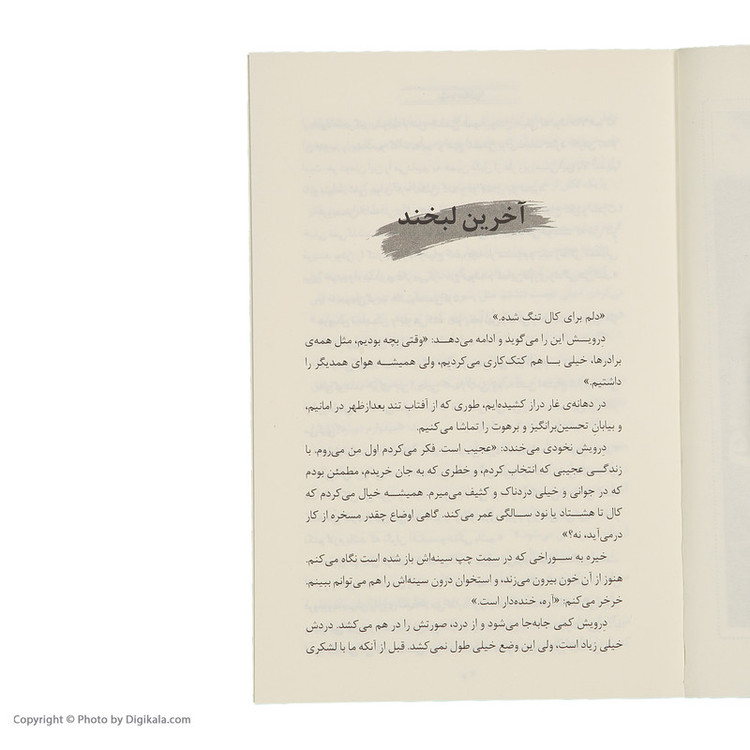 آخرین لبخند
«دلم برای کال تنگ شده.»
دِرویش این را می‌گوید و ادامه می‌دهد: «وقتی بچه بودیم، مثل همه‌ی
برادرها، خیلی با هم کتک‌کاری می‌کردیم، ولی همیشه هوای همدیگر را
داشتیم.»
در دهانه‌ی غار دراز کشیده‌ایم، طوری که از آفتاب تند بعدازظهر در امانیم،
و بیابانِ تحسین‌برانگیز و برهوت را تماشا می‌کنیم.
دِرویش نخودی می‌خندد: «عجیب است. فکر می‌کردم اول من می‌روم. با
زندگی عجیبی که انتخاب کردم، و خطری که به جان خریدم، مطمئن بودم
که در جوانی و خیلی دردناک و کثیف می‌میرم. همیشه خیال می‌کردم که
کال تا هشتاد یا نود سالگی عمر می‌کند. گاهی اوضاع چقدر مسخره از کار
درمی‌آید، نه؟»
خیره به سوراخی که در سمت چپ سینه‌اش باز شده است نگاه می‌کنم.
هنوز از آن خون بیرون می‌زند، و استخوان درون سینه‌اش را هم می‌توانم ببینم.
خرخر می‌کنم: «آره، خنده‌دار است.»
دِرویش کمی جابه‌جا می‌شود و از درد، صورتش را در هم می‌کشد. دردش
خیلی زیاد است، ولی این وضع خیلی طول نمی‌کشد. قبل از آنکه ما با لشکری
Copyright © Photo by Digikala.com